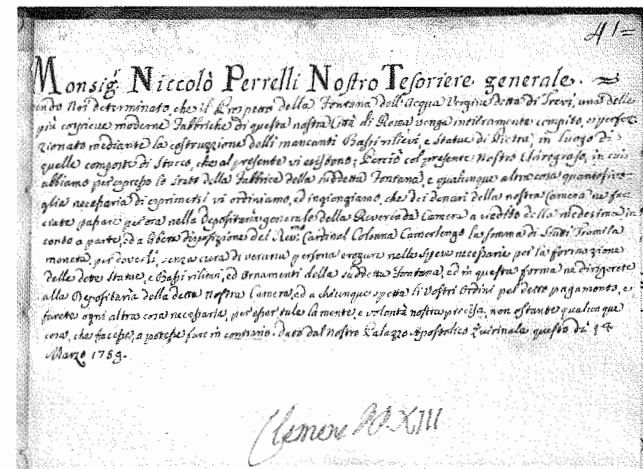 41=
Monsig.r Niccolò Perrelli Nostro Tesoriere generale.
endo Noi determinato, che il Prospetto della Fontana dell'Acqua Vergine detta di Trevi, una delle
più cospicue moderne Fabbriche di questa nostra Città di Roma venga intieramente compito, e perfez-
zionato mediante la costruzzione delli mancanti Bassi rilievi, e Statue di Pietra, in luogo di
quelle composte di Stucco, che al presente vi esistono; Perciò col presente Nostro Chirografo, in cui
abbiamo per espresso lo Stato della Fabbrica della suddetta Fontana, e qualunque altra cosa quantosivo-
glia necessaria di esprimersi vi ordiniamo, ed ingiongiamo, che dei denari della nostra Camera ne fac-
ciate passare per ora nella Depositaria generale della Reverenda Camera a credito della medesima in
conto a parte, ed a libera disposizione del Rev.mo Cardinal Colonna Camerlengo la somma di Scudi Tremila
moneta, per doverli, senza cura di veruna persona erogare nelle spese necessarie per la formazione
delle dette Statue, e Bassi rilievi, ed Ornamenti della suddetta Fontana, ed in questa forma ne dirigerete
alla Depositaria della detta nostra Camera, ed a chiunque spetta li Vostri Ordini pel detto pagamento, e
farete ogni altra cosa necessaria, per esser tale la mente, e volontà nostra precisa, non ostante qualunque
cosa, che facesse, o potesse fare in contrario. Dato dal Nostro Palazzo Apostolico Quirinale questo dì 14
Marzo 1759.
Clemens PP. XIII